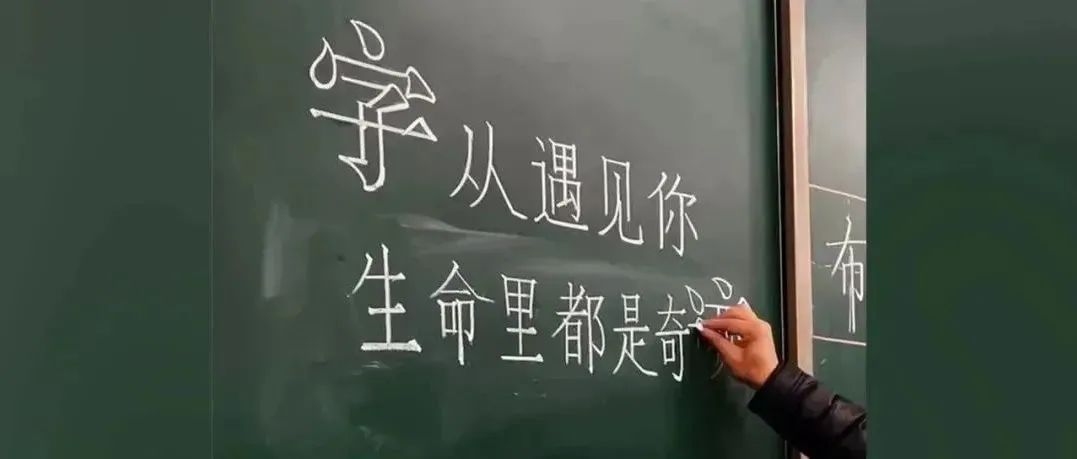 字
从遇见你
生命里都是奇
布